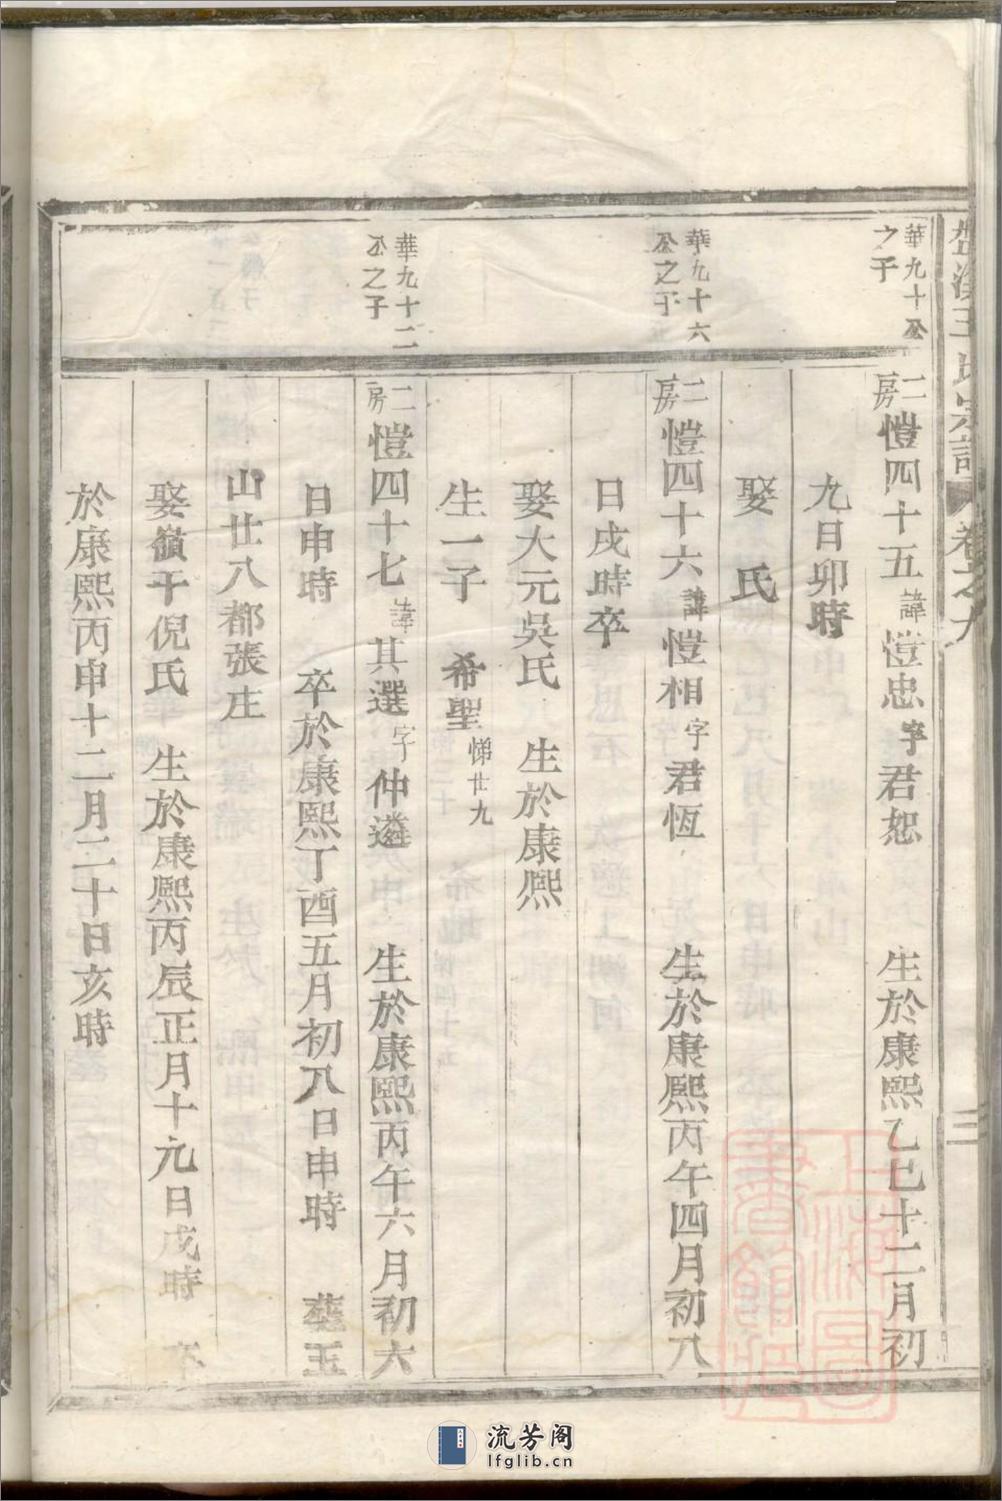 盤溪王氏宗譜 卷之九 三
華九十公
之子
二房愷四十五諱愷忠字君恕 生於康熙乙巳十二月初
九日卯時
娶 氏
華九十六
公之子
二房愷四十六諱愷相字君恆 生於康熙丙午四月初八
日戌時卒
娶大元吳氏 生於康熙
生一子 希聖悌廿九
華九十二
公之子
二房愷四十七諱其選字仲遴 生於康熙丙午六月初六
日申時 卒於康熙丁酉五月初八日申時 葬玉
山廿八都張庄
娶嶺干倪氏 生於康熙丙辰正月十元日戌時 卒
於康熙丙申十二月二十日亥時
上海圖書館藏
流芳阁
lfglib.cn